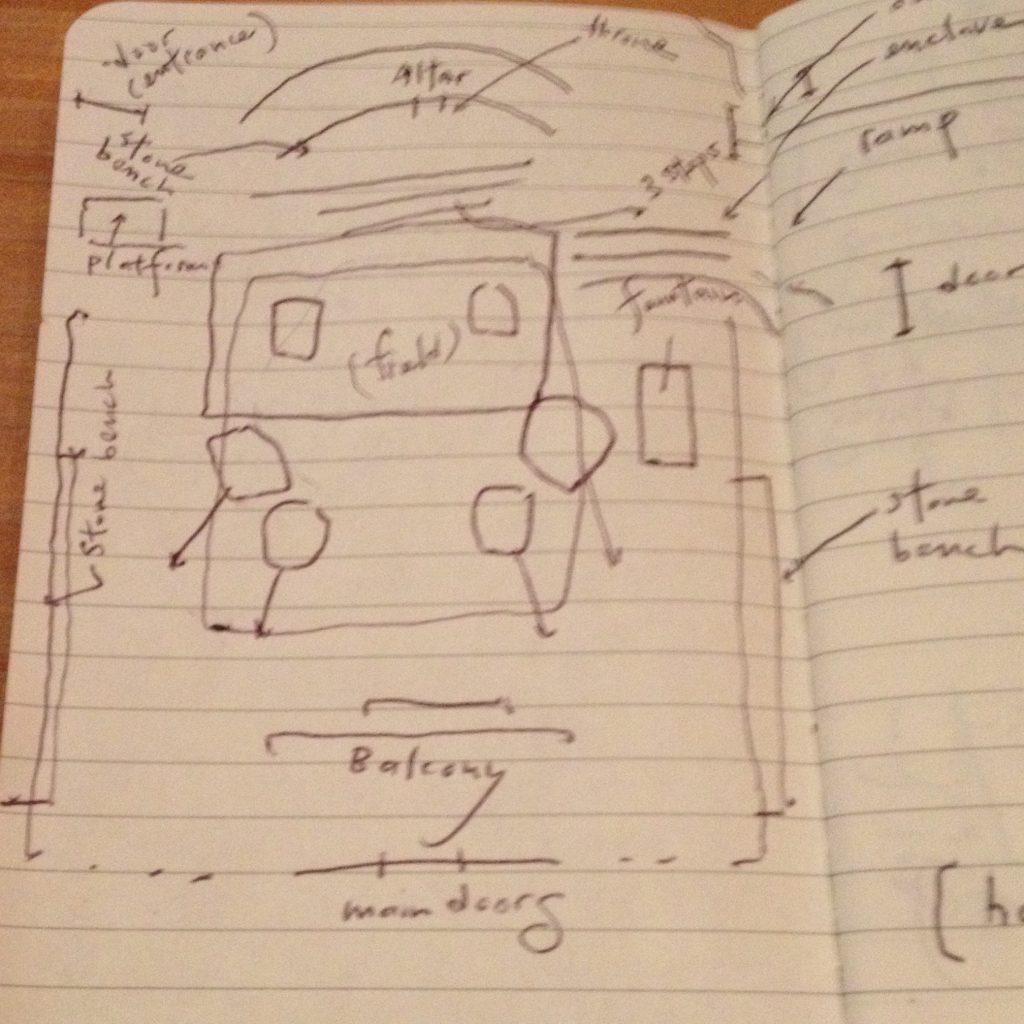 door
(entrance)
Altar
throne
enclave
stone
bench
3 steps
ramp
Platform
door
fountain
(field)
stone bench
stone
bench
Balcony
main doors